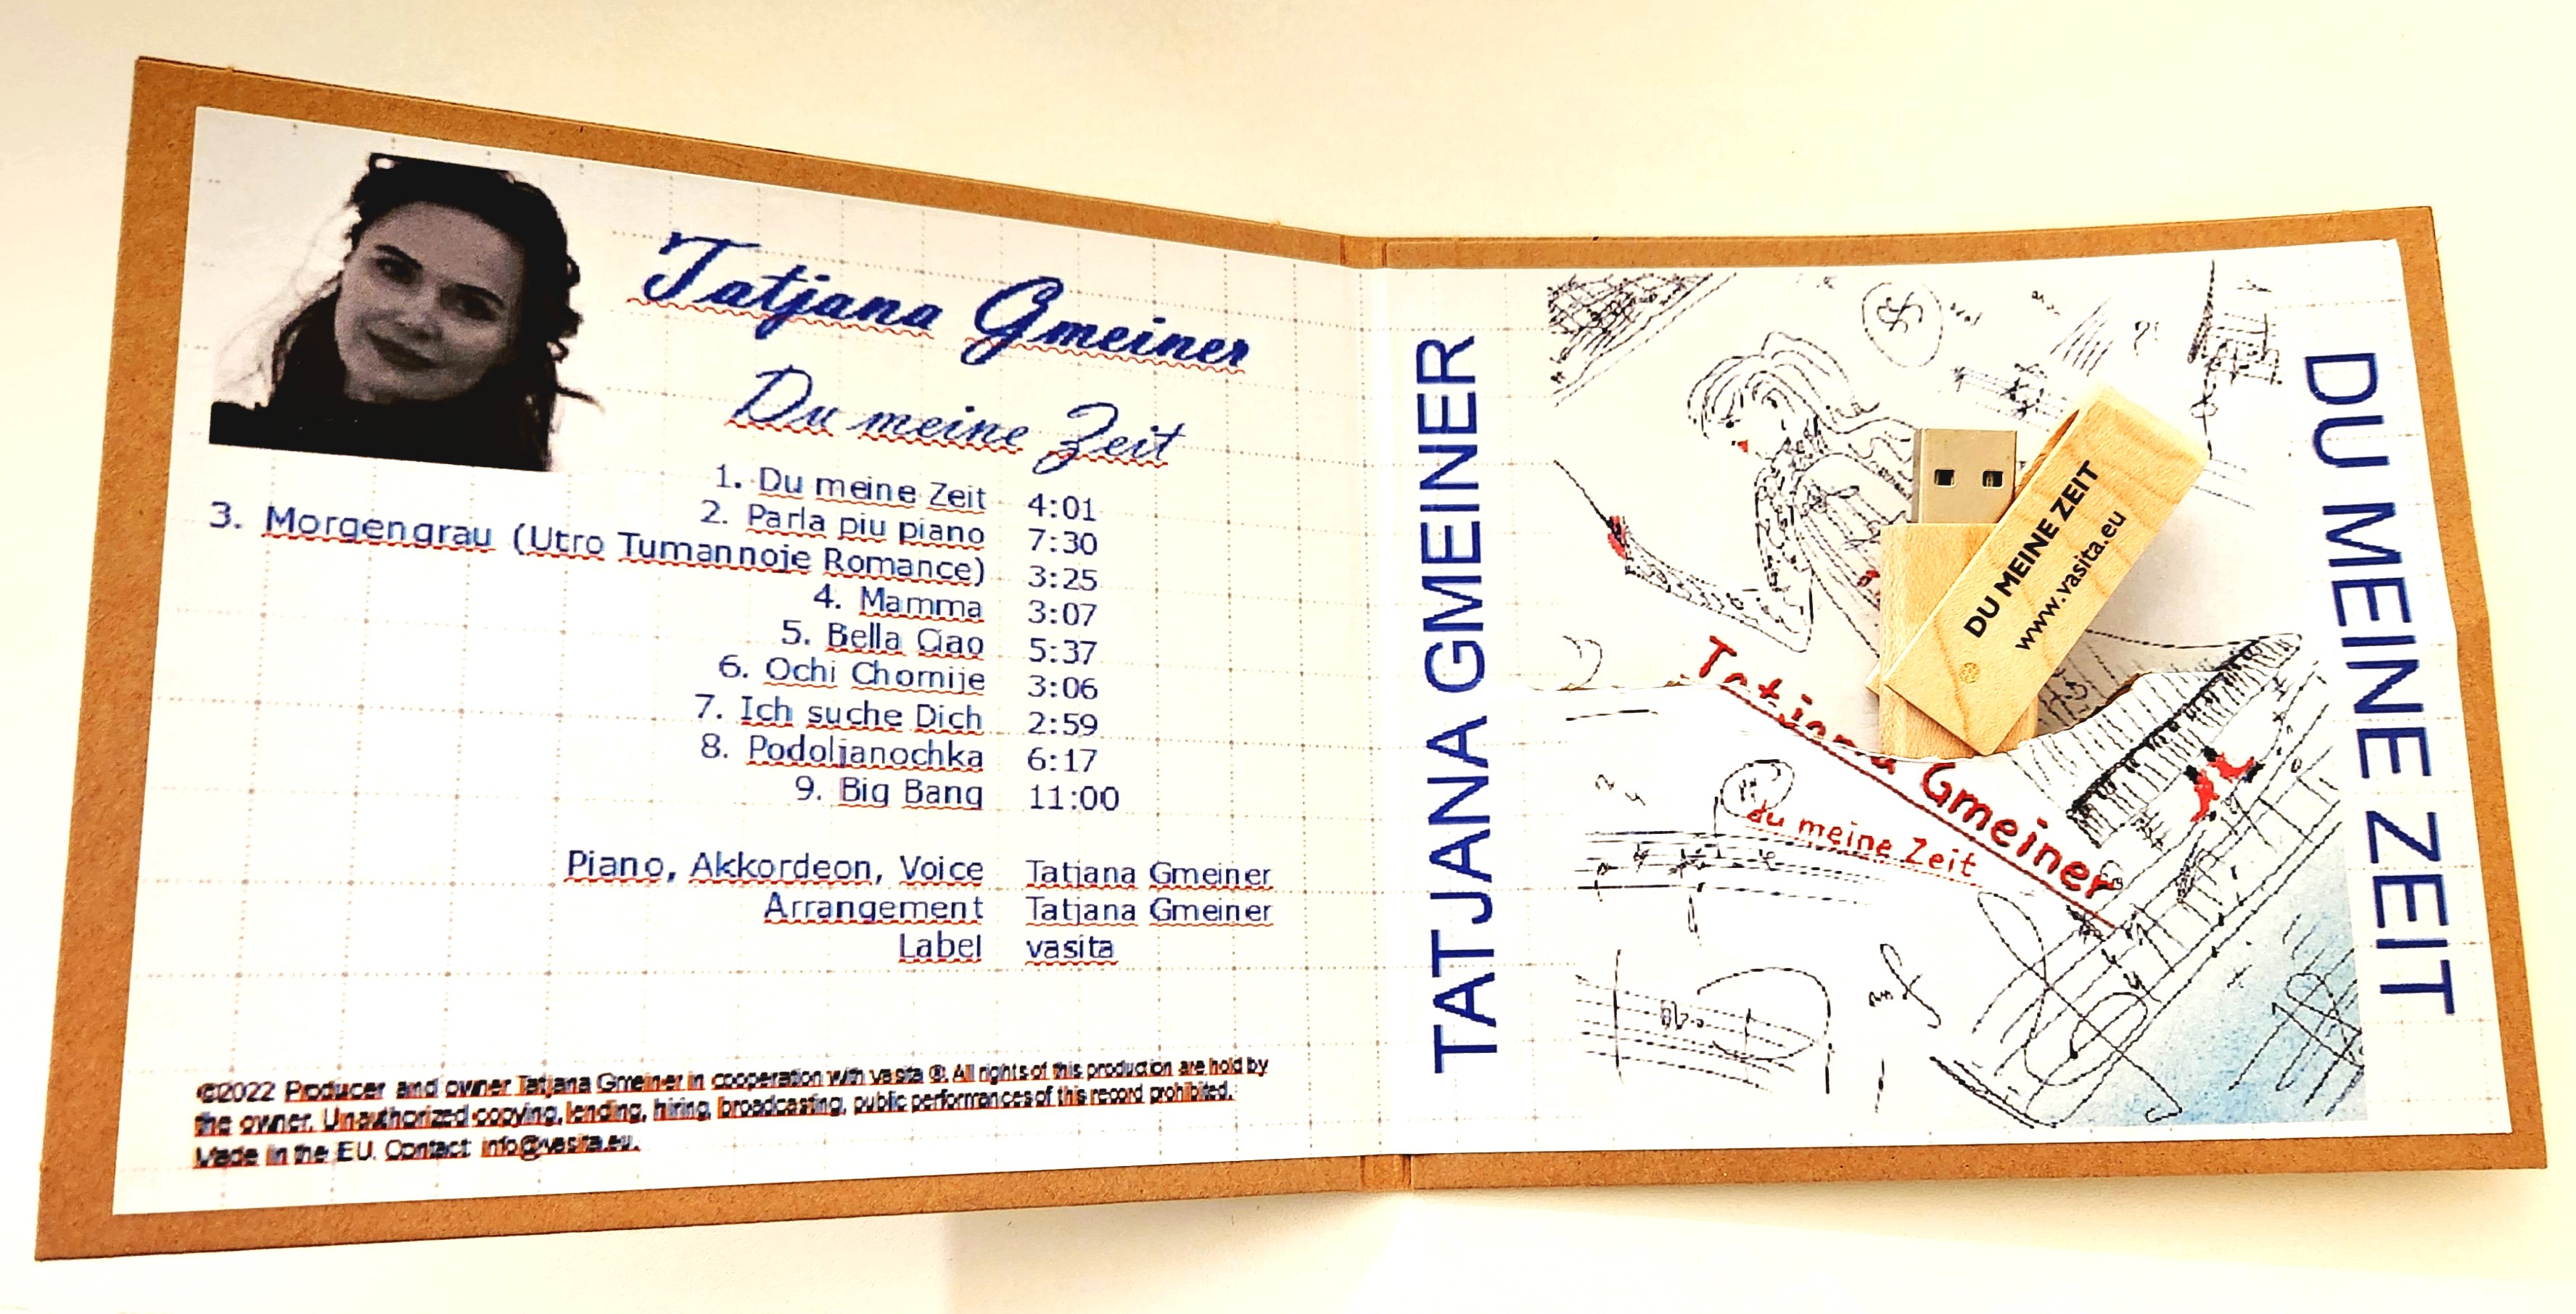 Tatjana Gmeiner
Du meine Zeit
1. Du meine Zeit 4:01
2. Parla piu piano 7:30
3. Morgengrau (Utro Tumannoje Romance) 3:25
4. Mamma 3:07
5. Bella Ciao 5:37
6. Ochi Chornije 3:06
7. Ich suche Dich 2:59
8. Podoljanochka 6:17
9. Big Bang 11:00
Piano, Akkordeon, Voice Tatjana Gmeiner
Arrangement Tatjana Gmeiner
Label vasita
©2022 Producer and owner Tatjana Gmeiner in cooperation with vasita ®. All rights of this production are hold by
the owner. Unauthorized copying, lending, hiring, broadcasting, public performances of this record prohibited.
Made in the EU. Contact: info@vasita.eu.
TATJANA GMEINER
DU MEINE ZEIT
www.vasita.eu
Tatjana Gmeiner
du meine Zeit
DU MEINE ZEIT